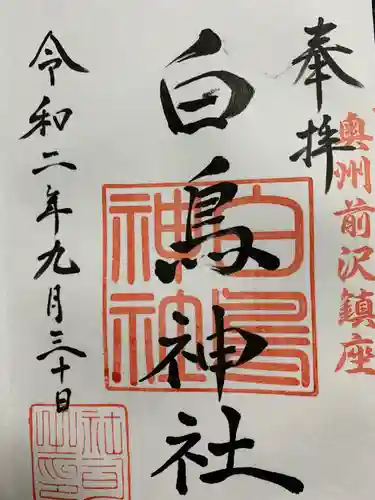 奉拝
奥州前沢鎮座
白鳥神社
白鳥神社
令和二年九月三十日